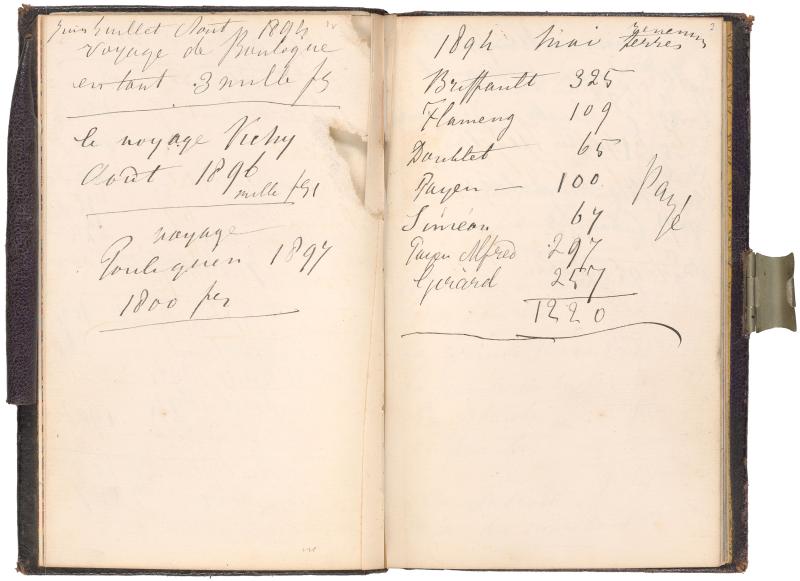 Juin Juillet Aout 1894
voyage de Boulogne
en tout 3 mille frs
le voyage Vichy
Août 1896
mille frs
voyage
Pouliguen 1897
1800 frs
3
1894 Mai
terres
Briffault 325
Flameng 109
Doublet 65
Payen — 100
Siméon 67
Payen Alfred 297
Gérard 257
1220
Payé